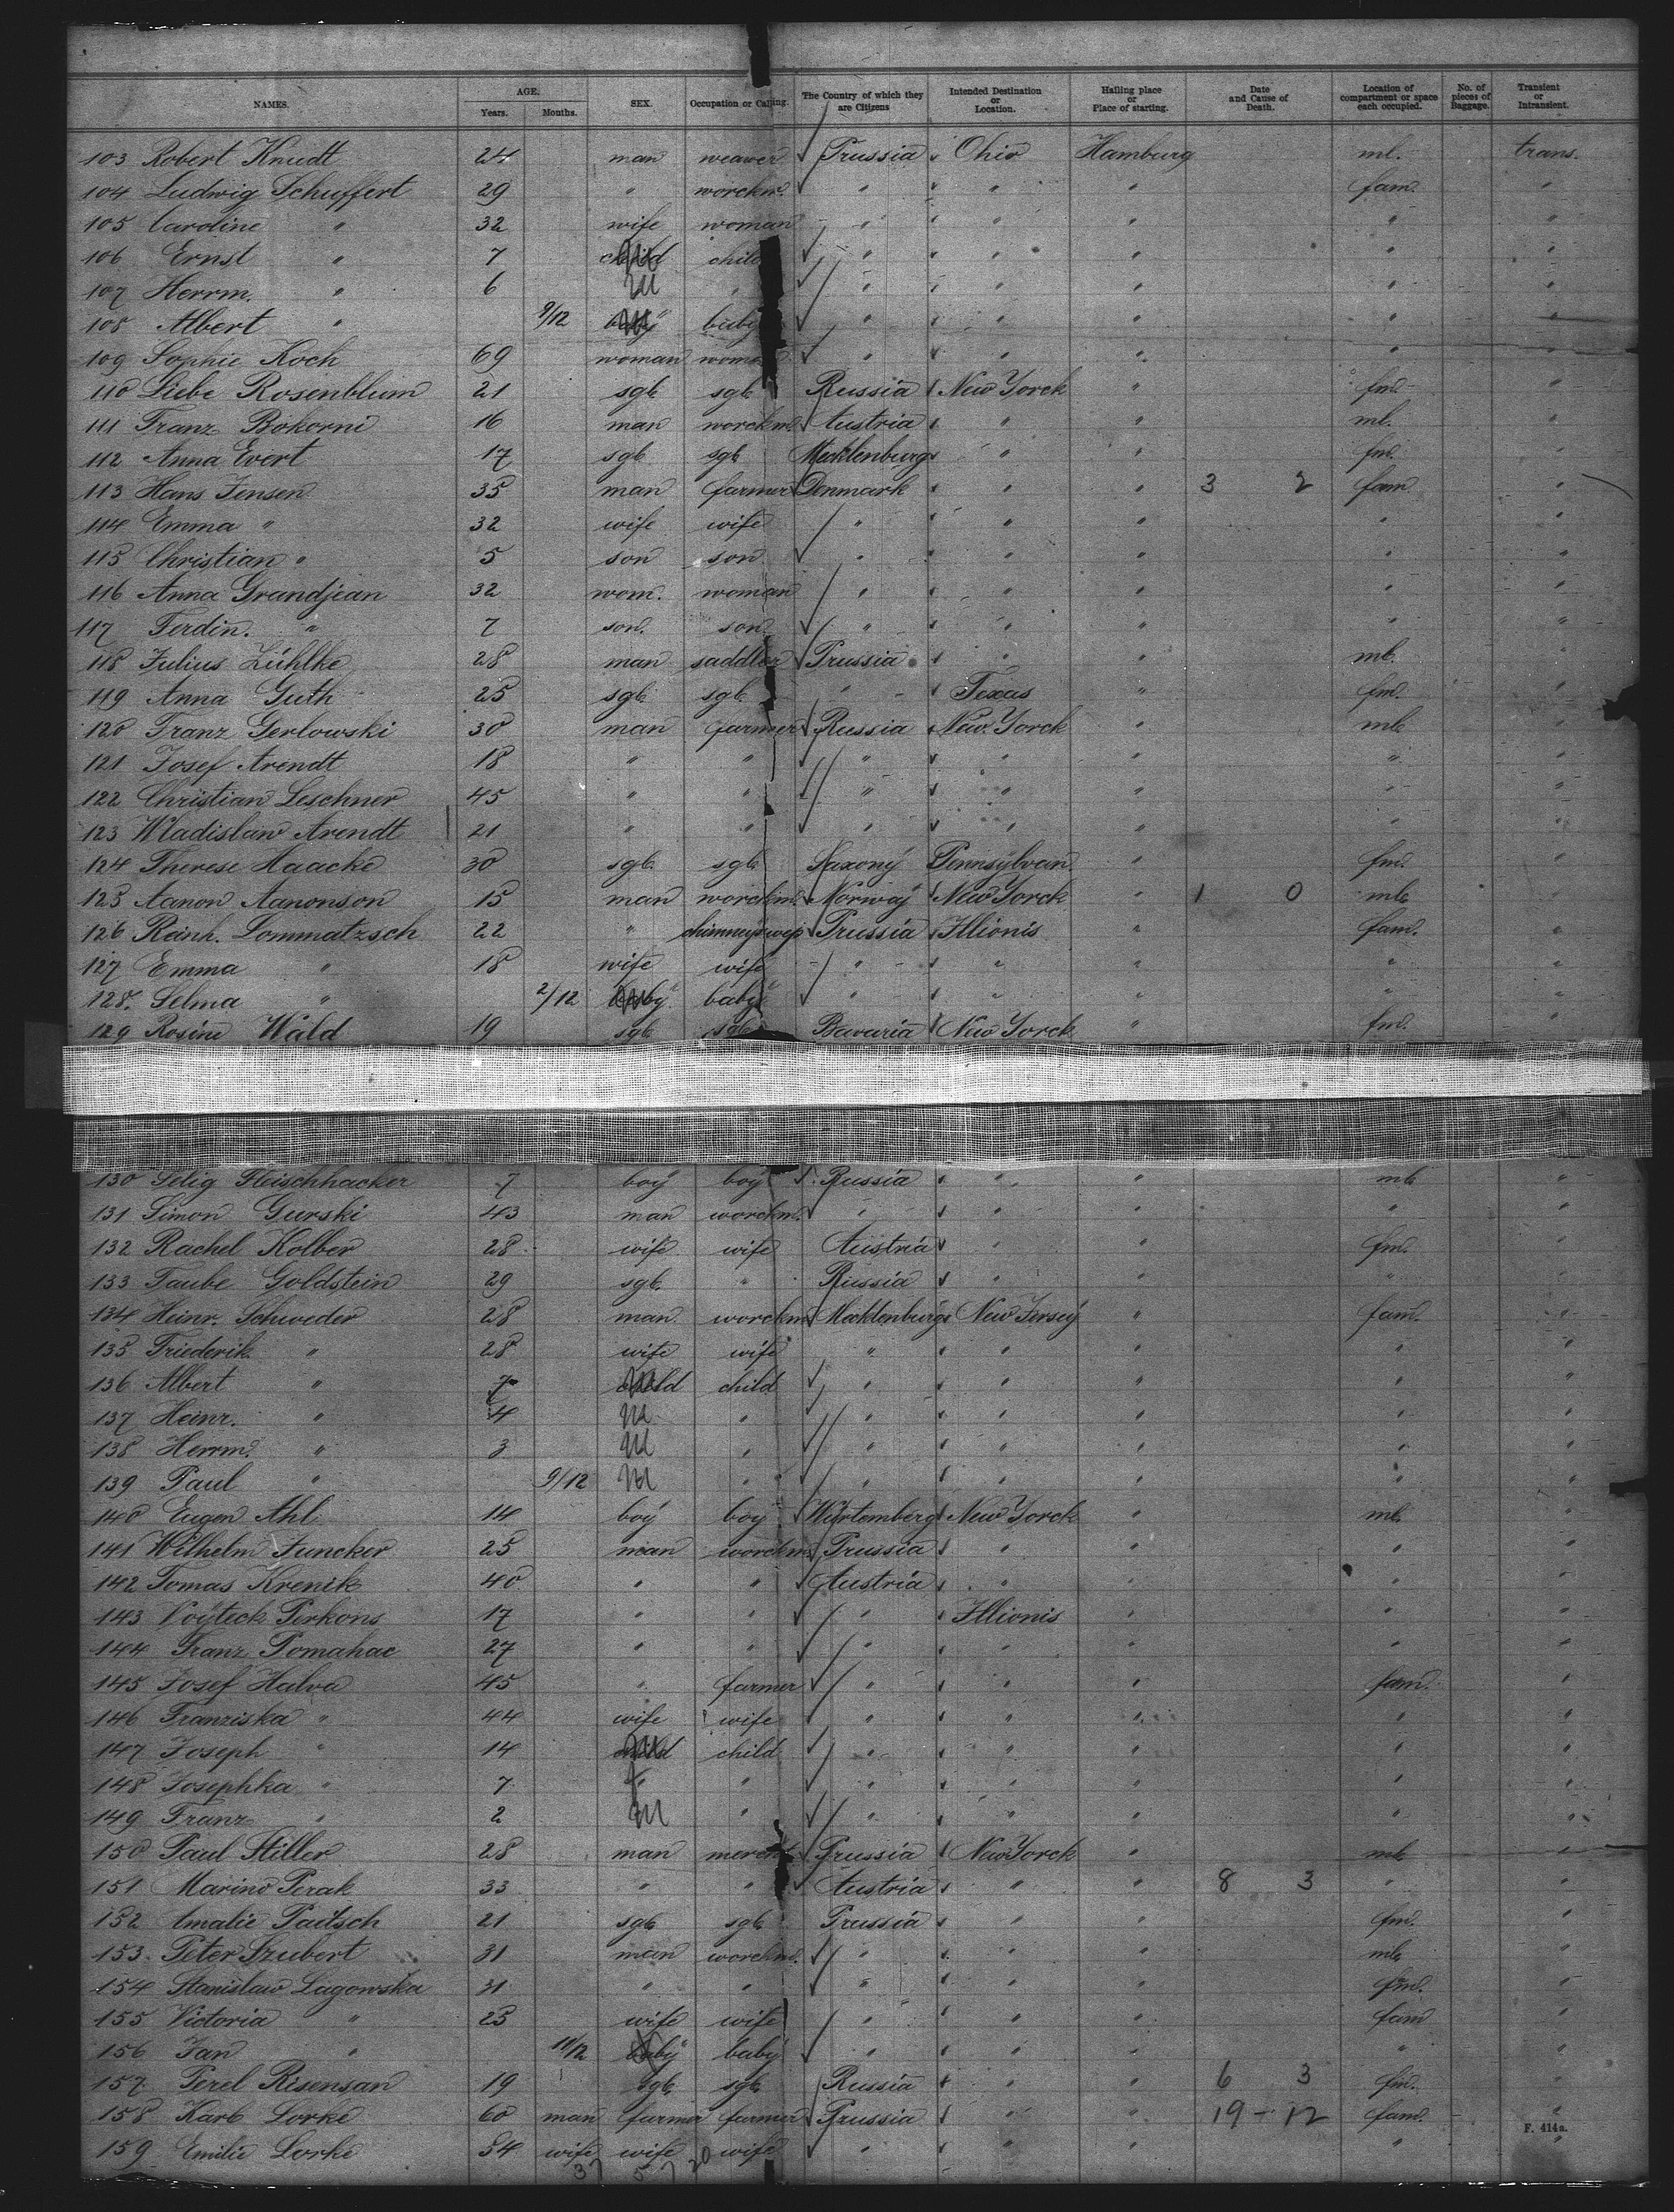 NAMES. AGE. Years. Months. SEX. Occupation or Calling. The Country of which they are Citizens Intended Destination or Location. Hailing place or Place of starting. Date and Cause of Death. Location of compartment or space each occupied. No. of pieces of Baggage. Transient or Intransient.
103 Robert Knudt 24 man weaver Prussia Ohio Hamburg ml. trans.
104 Ludwig Schuffert 29 " workm. " " " fam. "
105 Caroline " 32 wife woman " " " " "
106 Ernst " 7 child child " " " " "
107 Herrm. " 6 M " " " " " "
108 Albert " 9/12 baby baby " " " " "
109 Sophie Koch 69 woman woman " " " " "
110 Liebe Rosenblum 21 sgl. sgl. Russia New Yorck " fml. "
111 Franz Bokorni 16 man worckm. Austria " " ml. "
112 Anna Evert 17 sgl. sgl. Mecklenburg " " fml. "
113 Hans Jensen 35 man farmer Denmark " " 3 2 fam "
114 Emma " 32 wife wife " " " " "
115 Christian " 5 son son " " " " "
116 Anna Grandjean 32 wom. woman " " " " "
117 Ferdin. " 7 son. son. " " " " "
118 Julius Zühlke 28 man saddler Prussia " " ml. "
119 Anna Guth 25 sgl. sgl. " Texas " fml. "
120 Franz Gerlowski 30 man farmer Russia New Yorck " ml. "
121 Josef Arendt 18 " " " " " " "
122 Christian Leschner 45 " " " " " " "
123 Wladislaw Arendt 21 " " " " " " "
124 Therese Haacke 30 sgl. sgl. Saxony Pennsylvan. " fml. "
125 Aanon Aanonson 15 man worckm. Norway New Yorck " 1 0 ml. "
126 Reinh. Lommatzsch 22 " chimneyswep Prussia Illionis " fam. "
127 Emma " 18 wife wife " " " " "
128. Selma " 2/12 baby baby " " " " "
129 Rosine Wald 19 sgl. sgl. Bavaria New Yorck " fml. "
130 Selig Fleischhacker 7 boy boy Russia " " ml. "
131 Simon Gurski 43 man worckm. " " " " "
132 Rachel Kolber 28 wife wife Austria " " fml. "
133 Taube Goldstein 29 sgl. " Russia " " " "
134 Heinr. Schweder 28 man worckm Mecklenburg New Jersey " fam. "
135 Friederik. " 28 wife wife " " " " "
136 Albert " 7 child child " " " " "
137 Heinr. " 4 M " " " " " "
138 Herrm. " 3 M " " " " " "
139 Paul " 9/12 M " " " " " "
140 Eugen Ahl 14 boy boy Würtemberg New Yorck " ml. "
141 Wilhelm Juncker 25 man worckm. Prussia " " " "
142 Tomas Krenik 40 " " Austria " " " "
143 Voyteck Perkons 17 " " " Illionis " " "
144 Franz Pomahac 27 " " " " " " "
145 Josef Halva 45 " farmer " " " fam. "
146 Franziska " 44 wife wife " " " " "
147 Joseph " 14 child child " " " " "
148 Josephka " 7 f " " " " " "
149 Franz " 2 M " " " " " "
150 Paul Stiller 28 man mercht. Prussia New Yorck " ml. "
151 Marino Perak 33 " " Austria " " 8 3 " "
152 Amalie Paitsch 21 sgl. sgl. Prussia " " fml. "
153. Peter Szubert 31 man worckm. " " " ml. "
154 Stanislaw Lagowska 31 " " " " " fml. "
155 Victoria " 25 wife wife " " " fam "
156 Jan " 10/12 baby baby " " " " "
157 Perel Risensan 19 sgl. sgl. Russia " " 6 3 fml. "
158 Karl Lorke 60 man farmer farmer Prussia " " 19-12 fam. "
159 Emilie Lorke 54 wife wife wife " " " " "
37 57 20
F. 414a.